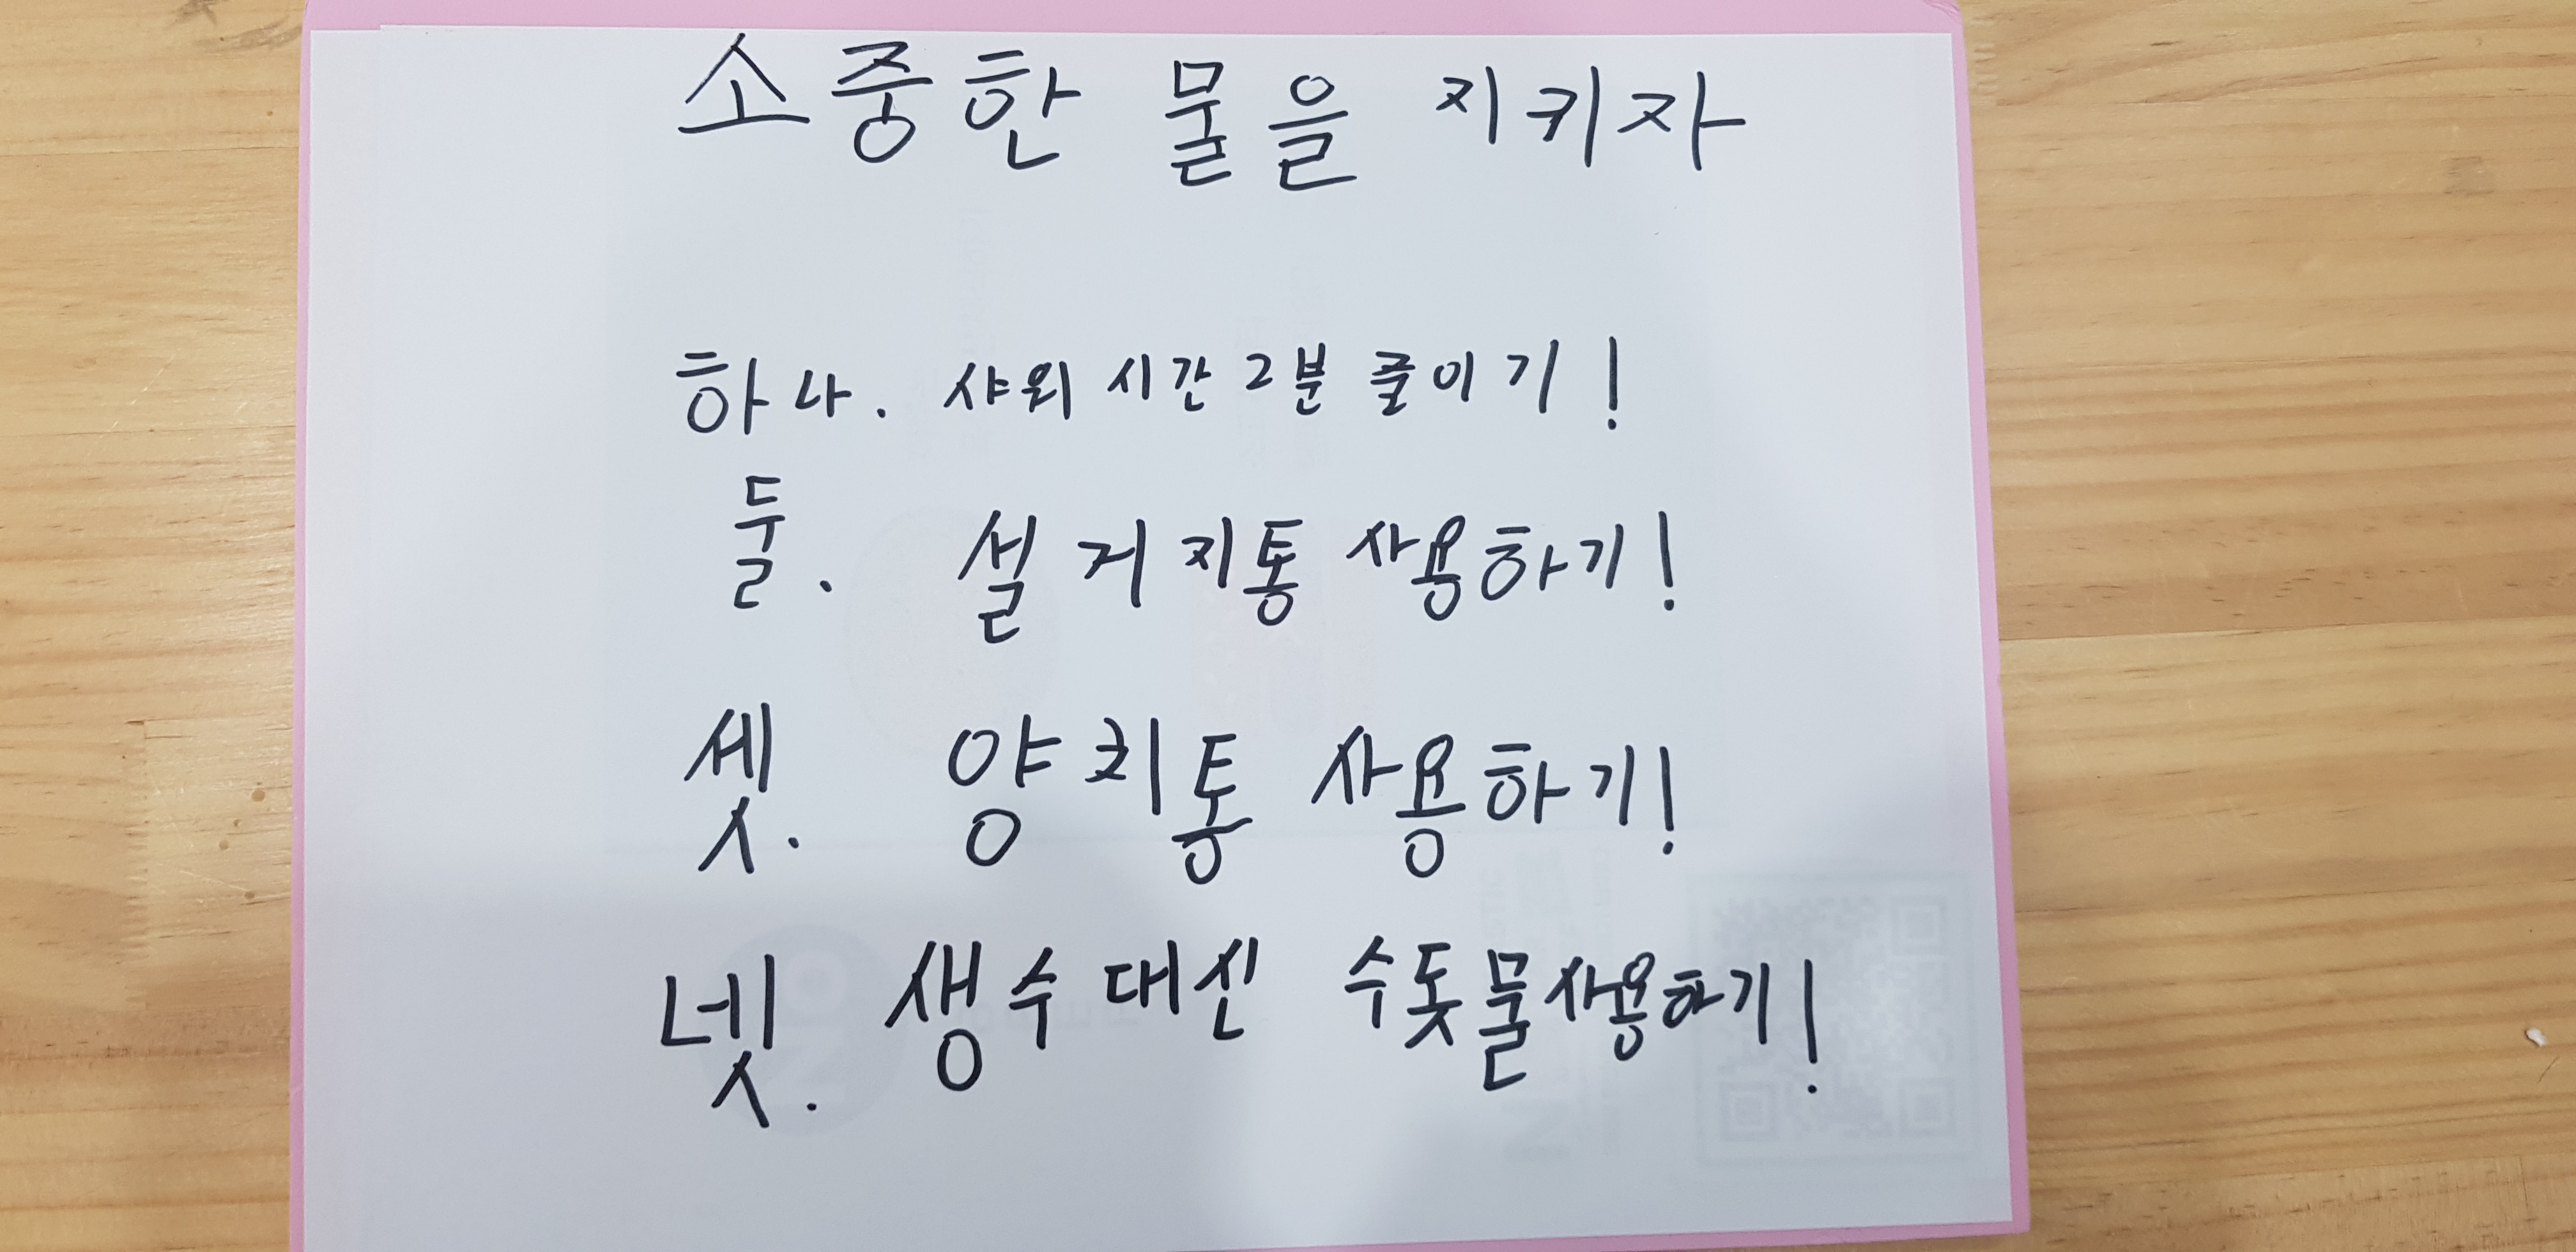 소중한 물을 지키자
하나. 샤워 시간 2분 줄이기!
둘. 설거지통 사용하기!
셋. 양치통 사용하기!
넷. 생수 대신 수돗물 사용하기!